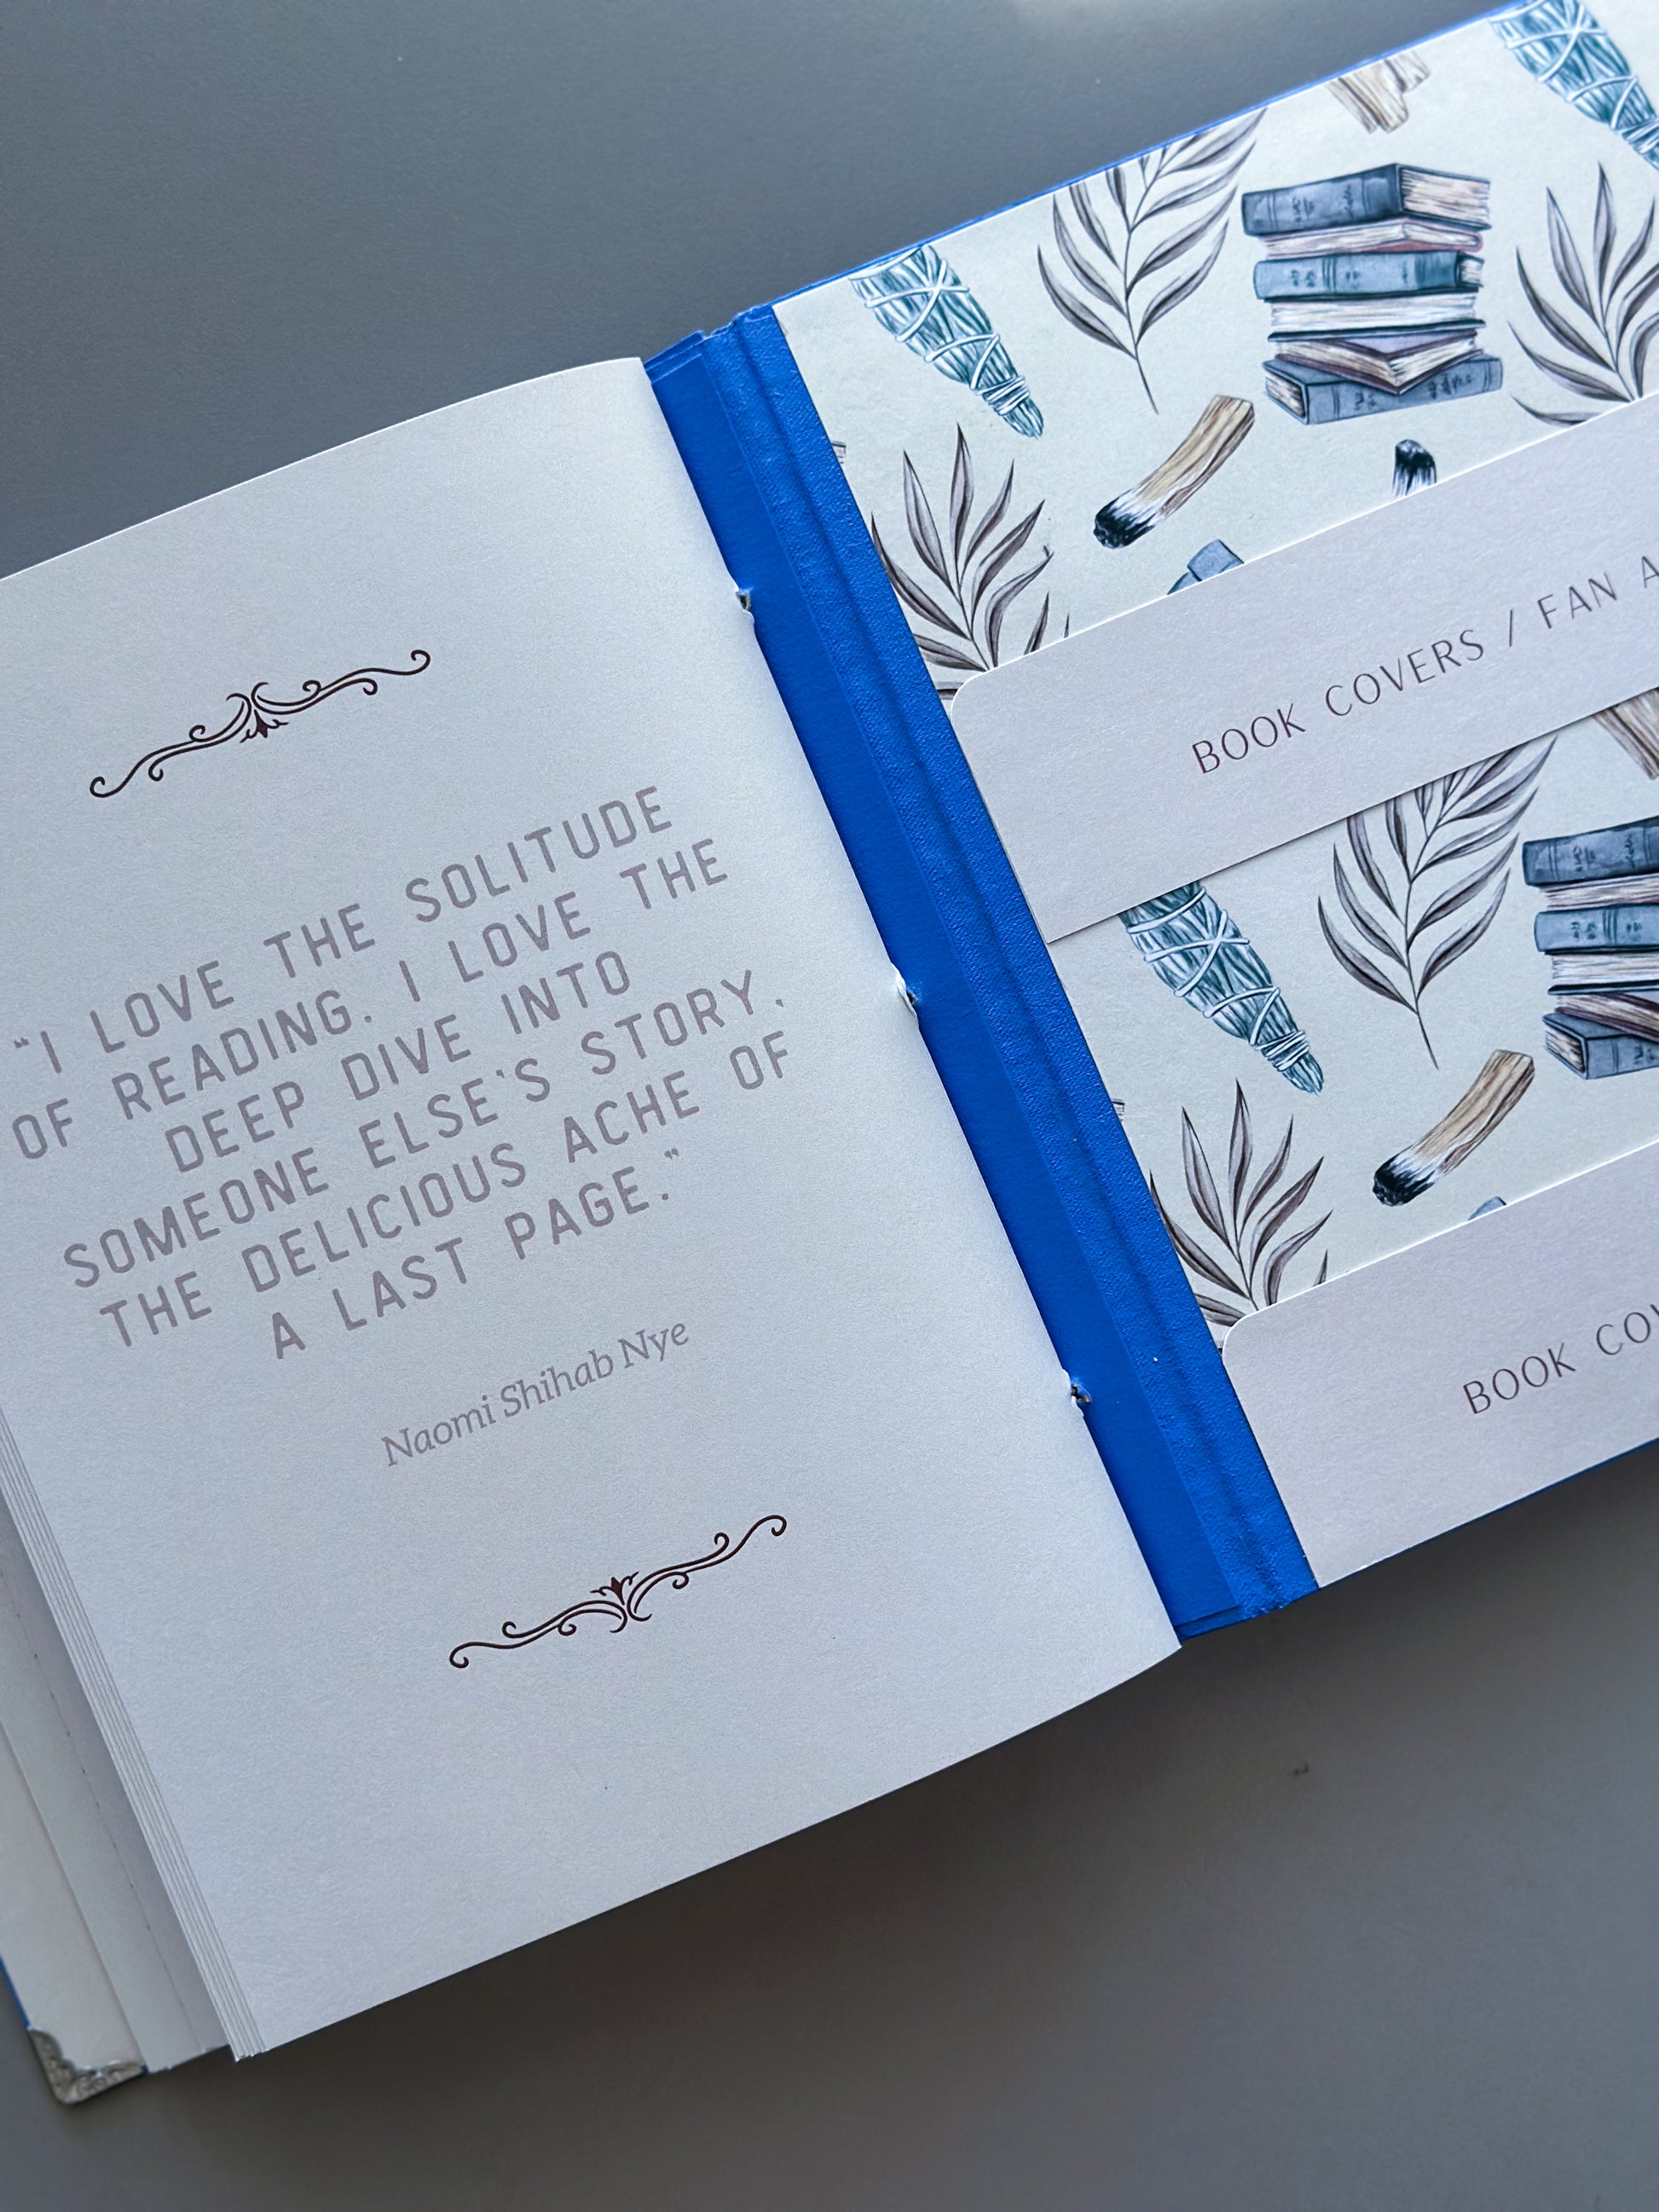 "I LOVE THE SOLITUDE
OF READING. I LOVE THE
DEEP DIVE INTO
SOMEONE ELSE'S STORY,
THE DELICIOUS ACHE OF
A LAST PAGE."
Naomi Shihab Nye
BOOK COVERS / FAN A
BOOK COV